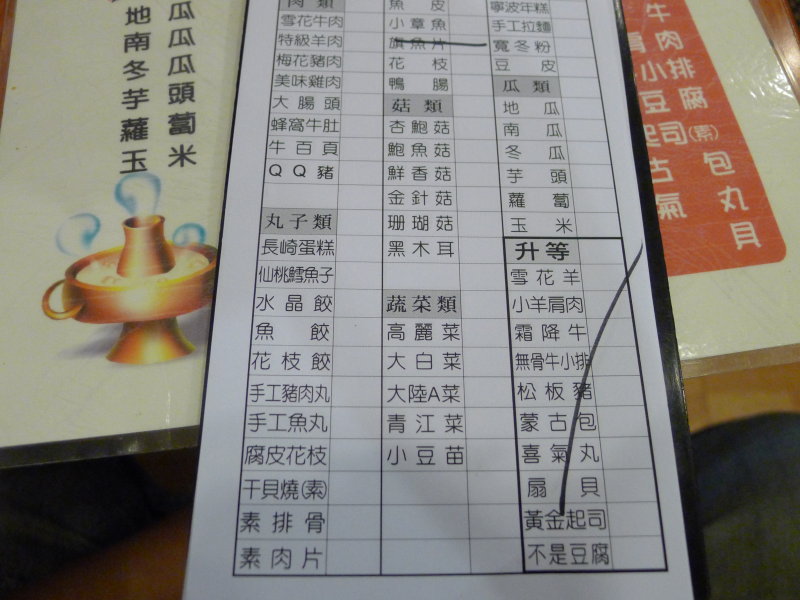 肉類
雪花牛肉
特級羊肉
梅花豬肉
美味雞肉
大腸頭
蜂窩牛肚
牛百頁
QQ豬
丸子類
長崎蛋糕
仙桃鱈魚子
水晶餃
魚餃
花枝餃
手工豬肉丸
手工魚丸
腐皮花枝
干貝燒(素)
素排骨
素肉片
魚皮
小章魚
旗魚片
花枝
鴨腸
菇類
杏鮑菇
鮑魚菇
鮮香菇
金針菇
珊瑚菇
黑木耳
蔬菜類
高麗菜
大白菜
大陸A菜
青江菜
小豆苗
寧波年糕
手工拉麵
寬冬粉
豆皮
瓜類
地瓜
南瓜
冬瓜
芋頭
蘿蔔
玉米
升等
雪花羊
小羊肩肉
霜降牛
無骨牛小排
松板豬
蒙古包
喜氣丸
扇貝
黃金起司
不是豆腐
地瓜
南瓜
冬瓜
芋頭
蘿蔔
玉米
牛
肩肉
小排
豆腐
起司(素)
古包
氣丸
貝